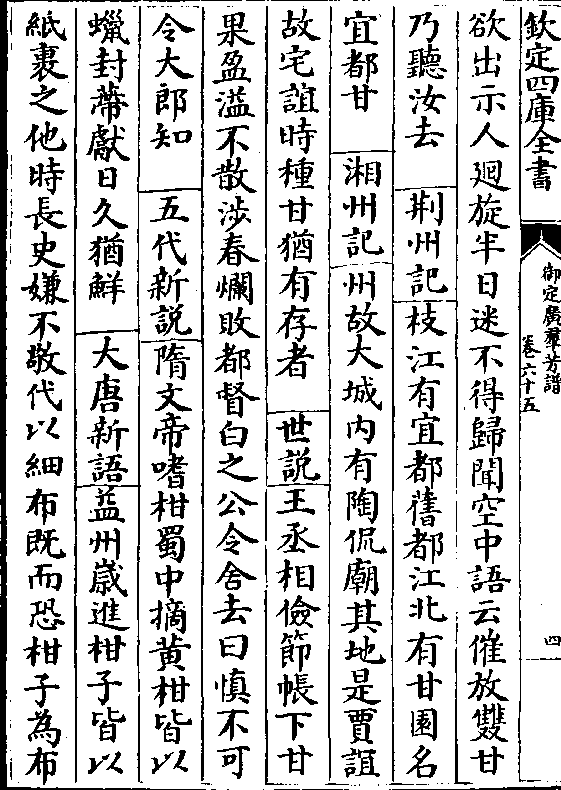 欽定四庫全書
御定廣羣芳譜
卷六十五
四
欲出示人廻旋半日迷不得歸聞空中語云催放雙甘
乃聽汝去　荆州記枝江有宜都舊都江北有甘園名
宜都甘　湘州記州故大城内有陶侃廟其地是賈誼
故宅誼時種甘猶有存者　世説王丞相儉節帳下甘
果盈溢不散涉春爛敗都督白之公令舍去曰慎不可
令大郎知　五代新説隋文帝嗜柑蜀中摘黄柑皆以
蠟封蔕獻日久猶鮮　大唐新語益州嵗進柑子皆以
紙裹之他時長史嫌不敬代以細布既而恐柑子為布